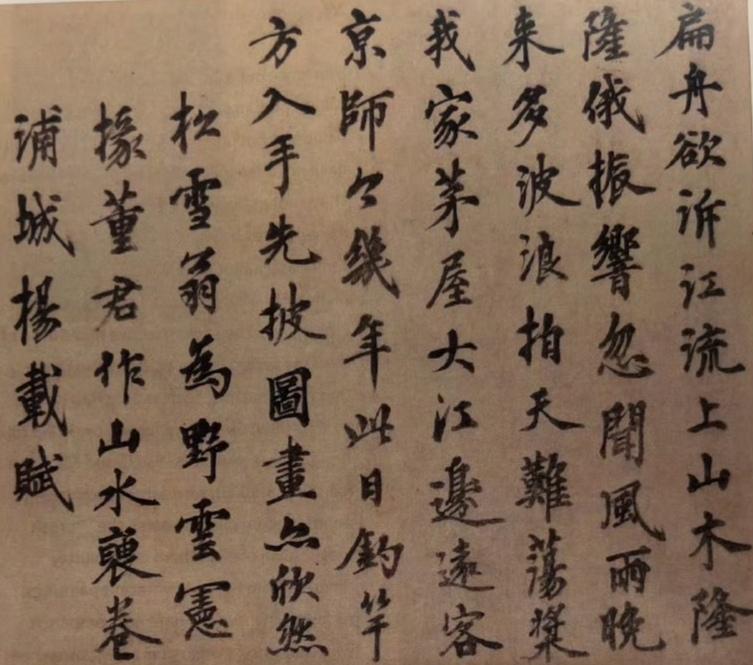 扁舟欲泝江流上山木隆
隆俄振響忽聞風雨晚
来多波浪拍天難蕩槳
我家茅屋大江邊遠客
京師今幾年此日釣竿
方入手先披圖畫亦欣然
松雪翁為野雲憲
掾董君作山水卷
浦城楊載賦